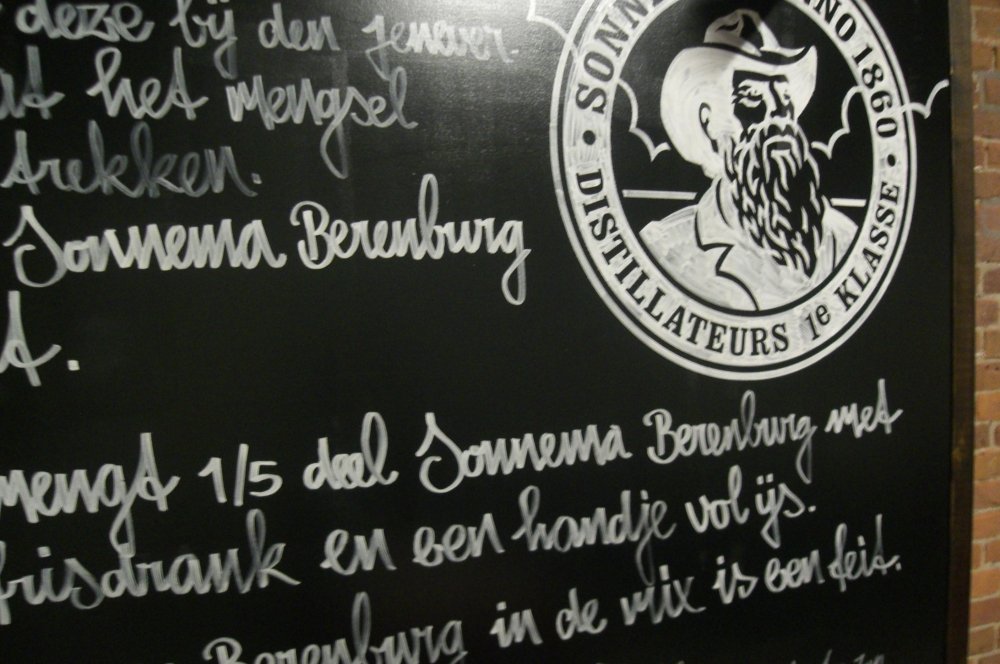 deze bij den jenever.
het mengsel
trekken.
Sonnema Berenburg
mengt 1/5 deel Sonnema Berenburg met
frisdrank en een handje vol ijs.
Berenburg in de mix is een feit.
ANNO 1860 •
• DISTILLATEURS 1e KLASSE